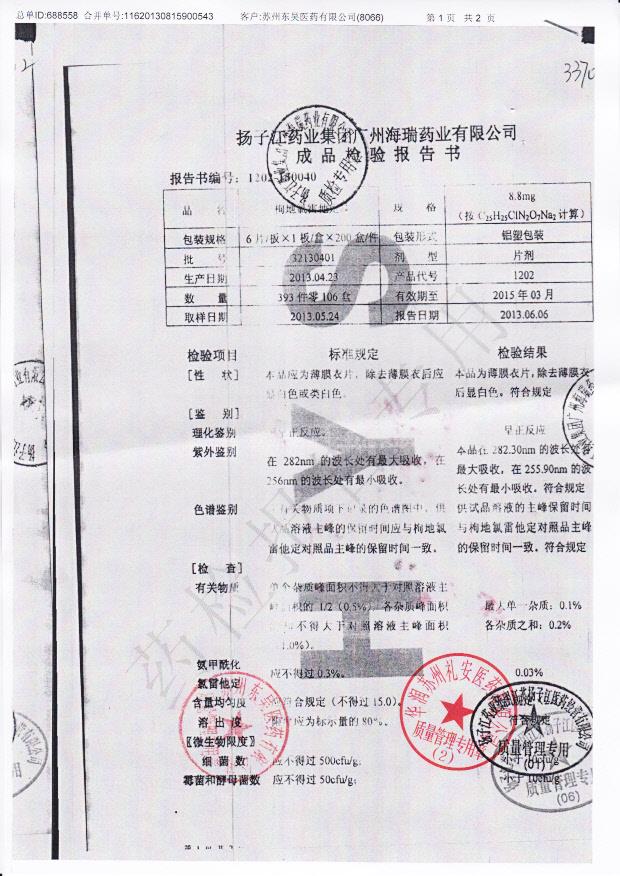 总单ID:688558 合并单号:11620130815900543 客户:苏州东吴医药有限公司(8066) 第1页 共2页
3370
扬子江药业集团广州海瑞药业有限公司
成品检验报告书
报告书编号: 1202-130040
品 名 枸地氯雷他定片 规 格 8.8mg
(按 C₂₅H₂₅ClN₂O₇Na₂ 计算)
包装规格 6片/板×1板/盒×200盒/件 包装形式 铝塑包装
批 号 32130401 剂 型 片剂
生产日期 2013.04.23 产品代号 1202
数 量 393件零106盒 有效期至 2015年03月
取样日期 2013.05.24 报告日期 2013.06.06
检验项目 标准规定 检验结果
[性 状] 本品应为薄膜衣片,除去薄膜衣后应 本品为薄膜衣片,除去薄膜衣
显白色或类白色。 后显白色。符合规定
[鉴 别]
理化鉴别 正反应。 呈正反应
紫外鉴别 本品在 282.30nm 的波长处有
在 282nm 的波长处有最大吸收,在 最大吸收,在 255.90nm 的波
256nm 的波长处有最小吸收。 长处有最小吸收。符合规定
色谱鉴别 有关物质项下记录的色谱图中,供 供试品溶液的主峰保留时间
试品溶液主峰的保留时间应与枸地氯 与枸地氯雷他定对照品主峰
雷他定对照品主峰的保留时间一致。 的保留时间一致。符合规定
[检 查]
有关物质 单个杂质峰面积不得大于对照溶液主
峰面积的 1/2 (0.5%) 各杂质峰面积 最大单一杂质: 0.1%
和不得大于对照溶液主峰面积 各杂质之和: 0.2%
(1.0%)。
氨甲酰化
氯雷他定 应不得过 0.3%。 0.03%
含量均匀度 应符合规定 (不得过 15.0)。 符合规定
溶出度 限度应为标示量的 80%。
〖微生物限度〗
细菌数 应不得过 500cfu/g;
霉菌和酵母菌数 应不得过 50cfu/g; 10cfu/g;
质检专用章
质量管理专用章
(2)
质量管理专用
(01)
质量管理专用
(06)
HYS
药检报告专用